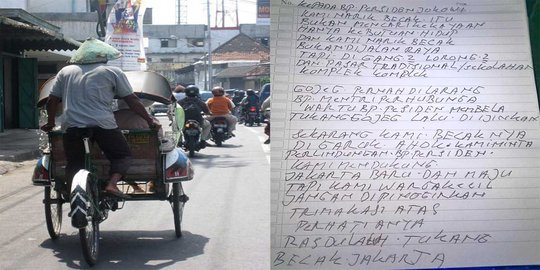 No.
KEPADA BP PERSIDEN JOKOWI
KAMI NARIK BECAK ITU
BUKAN MENCARI KEKAYAAN
HANYA KEBUTUAN HIDUP
DAN KATI NARIK BECAK
BUKAN DIJALAN RAYA
TAPI DI GANG2 LORONG2
DAN PASAR TRADISIONAL/SEKOLAHAN
KOMPLEK KOMPLEK
GOJEG PERNAH DI LARANG
BP. MENTRI PERHUBUNGA
WAKTU BP PRSIDEN MEMBELA
TUKANG GOJEG LALU DI IJINKAN
SEKARANG KAMI BECAKNYA
DI GARUK AHOK KAMI MINTA
PERLINDUNGAN BP PERSIDEN.
KAMI MENDUKUNG.
JAKARTA BARU DAN MAJU
TAPI KAMI WARGA KECIL
JANGAN DIPINGGINKAN
TRIMAKASI ATAS
PERHATIANYA
RASDULAH TUKANG
BECAK JAKARTA